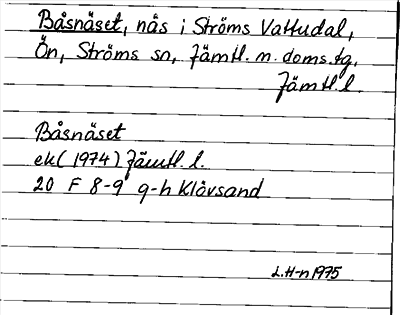 Båsnäset, näs i Ströms Vattudal,
Ön, Ströms sn, Jämtl. n. doms.tg,
Jämtl.l.
Båsnäset
ek (1974) Jämtl.l.
20 F 8-9 g-h Klövsand
L.H-n 1975